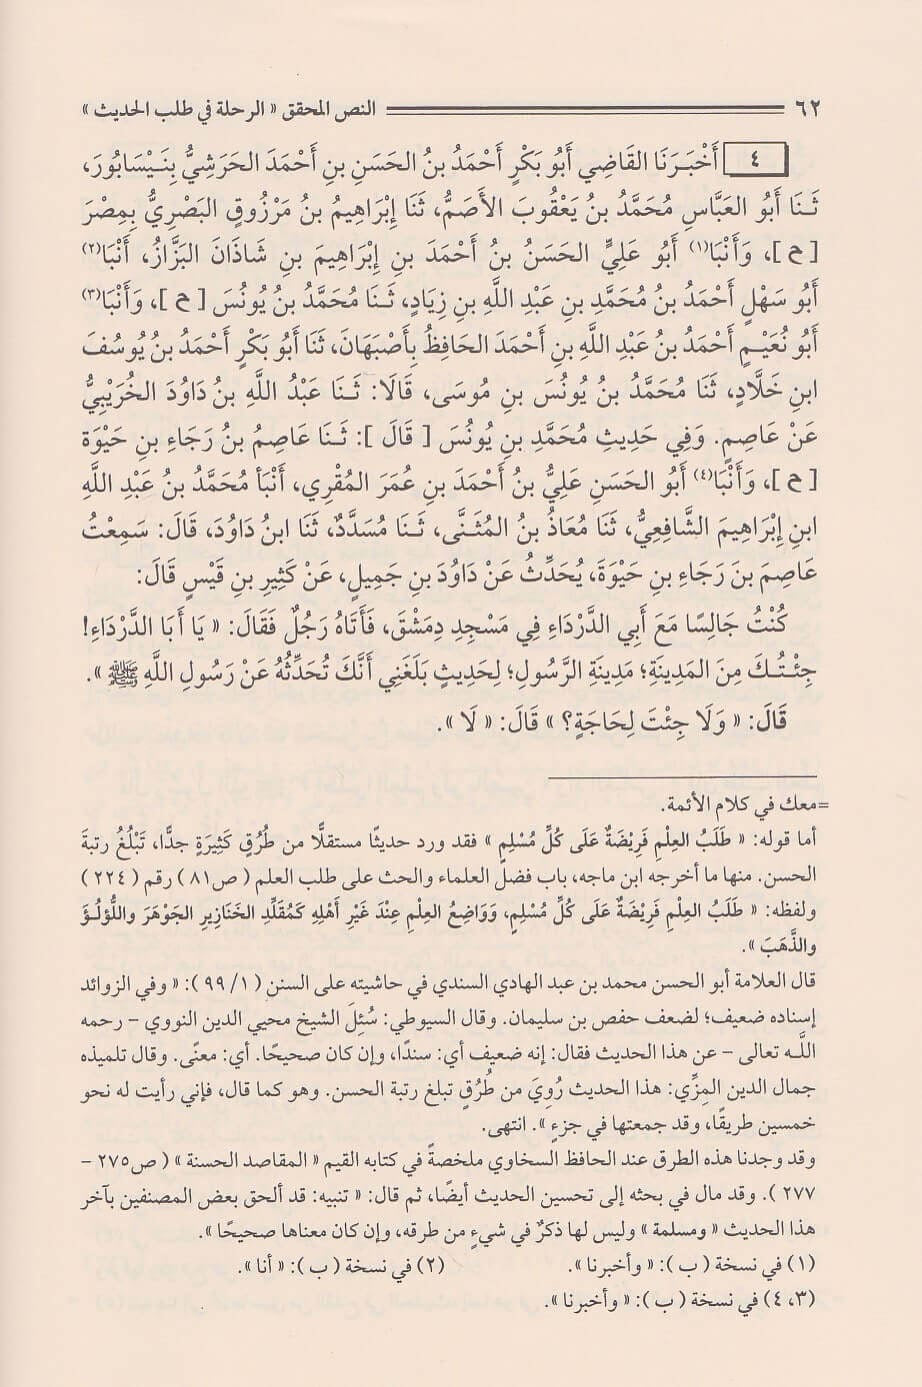 ٦٢ النص المحقق « الرحلة في طلب الحديث »
٤ أَخْبَرَنَا القَاضِي أَبُو بَكْرٍ أَحْمَدُ بنُ الحَسَنِ بنِ أَحْمَدَ الحَرَشِيُّ بِنَيْسَابُورَ،
ثَنَا أَبُو العَبَّاسِ مُحَمَّدُ بنُ يَعْقُوبَ الأَصَمُّ، ثَنَا إِبْرَاهِيمُ بنُ مَرْزُوقٍ البَصْرِيُّ بِمِصْرَ
[ ح ]، وَأَنْبَا(١) أَبُو عَلِيٍّ الحَسَنُ بنُ أَحْمَدَ بنِ إِبْرَاهِيمَ بنِ شَاذَانَ البَزَّازُ، أَنْبَا(٢)
أَبُو سَهْلٍ أَحْمَدُ بنُ مُحَمَّدِ بنِ عَبْدِ اللَّهِ بنِ زِيَادٍ، ثَنَا مُحَمَّدُ بنُ يُونُسَ [ ح ]، وَأَنْبَا(٣)
أَبُو نُعَيْمٍ أَحْمَدُ بنُ عَبْدِ اللَّهِ بنِ أَحْمَدَ الحَافِظُ بِأَصْبَهَانَ، ثَنَا أَبُو بَكْرٍ أَحْمَدُ بنُ يُوسُفَ
ابنِ خَلَّادٍ، ثَنَا مُحَمَّدُ بنُ يُونُسَ بنِ مُوسَى، قَالَا: ثَنَا عَبْدُ اللَّهِ بنُ دَاوُدَ الخُرَيْبِيُّ
عَنْ عَاصِمٍ. وَفِي حَدِيثِ مُحَمَّدِ بنِ يُونُسَ [ قَالَ ]: ثَنَا عَاصِمُ بنُ رَجَاءِ بنِ حَيْوَةَ
[ ح ]، وَأَنْبَا(٤) أَبُو الحَسَنِ عَلِيُّ بنُ أَحْمَدَ بنِ عُمَرَ المُقْرِي، أَنْبَأ مُحَمَّدُ بنُ عَبْدِ اللَّهِ
ابنِ إِبْرَاهِيمَ الشَّافِعِيُّ، ثَنَا مُعَاذُ بنُ المُثَنَّى، ثَنَا مُسَدَّدٌ، ثَنَا ابنُ دَاوُدَ، قَالَ: سَمِعْتُ
عَاصِمَ بنَ رَجَاءِ بنِ حَيْوَةَ، يُحَدِّثُ عَنْ دَاوُدَ بنِ جَمِيلٍ، عَنْ كَثِيرِ بنِ قَيْسٍ قَالَ:
كُنْتُ جَالِسًا مَعَ أَبِي الدَّرْدَاءِ فِي مَسْجِدِ دِمَشْقَ، فَأَتَاهُ رَجُلٌ فَقَالَ: « يَا أَبَا الدَّرْدَاءِ!
جِئْتُكَ مِنَ المَدِينَةِ؛ مَدِينَةِ الرَّسُولِ؛ لِحَدِيثٍ بَلَغَنِي أَنَّكَ تُحَدِّثُهُ عَنْ رَسُولِ اللَّهِ ﷺ ».
قَالَ: « وَلَا جِئْتَ لِحَاجَةٍ؟ » قَالَ: « لَا ».
=معك في كلام الأئمة.
أما قوله: « طَلَبُ العِلْمِ فَرِيضَةٌ عَلَى كُلِّ مُسْلِمٍ » فقد ورد حديثًا مستقلًّا من طُرُقٍ كَثِيرَةٍ جدًّا، تَبْلُغُ رتبةَ
الحسن. منها ما أخرجه ابن ماجه، باب فضل العلماء والحث على طلب العلم ( ص٨١ ) رقم ( ٢٢٤ )
ولفظه: « طَلَبُ العِلْمِ فَرِيضَةٌ عَلَى كُلِّ مُسْلِمٍ، وَوَاضِعُ العِلْمِ عِنْدَ غَيْرِ أَهْلِهِ كَمُقَلِّدِ الخَنَازِيرِ الجَوْهَرَ واللُّؤلُؤَ
والذَّهَبَ ».
قال العلامة أبو الحسن محمد بن عبد الهادي السندي في حاشيته على السنن ( ١/ ٩٩ ): « وفي الزوائد
إسناده ضعيف؛ لضعف حفص بن سليمان. وقال السيوطي: سُئِلَ الشيخ محيي الدين النووي – رحمه
اللَّه تعالى – عن هذا الحديث فقال: إنه ضعيف أي: سندًا، وإن كان صحيحًا. أي: معنًى. وقال تلميذه
جمال الدين المِزِّي: هذا الحديث رُوِيَ من طُرُقٍ تبلغ رتبة الحسن. وهو كما قال، فإني رأيت له نحو
خمسين طريقًا، وقد جمعتها في جزءٍ ». انتهى.
وقد وجدنا هذه الطرق عند الحافظ السخاوي ملخصةً في كتابه القيم « المقاصد الحسنة » ( ص٢٧٥ –
٢٧٧ ). وقد مال في بحثه إلى تحسين الحديث أيضًا، ثم قال: « تنبيه: قد ألحق بعض المصنفين بآخر
هذا الحديث « ومسلمة » وليس لها ذكرٌ في شيءٍ من طرقه، وإن كان معناها صحيحًا ».
(١) في نسخة ( ب ): « وأخبرنا ». (٢) في نسخة ( ب ): « أنا ».
(٣، ٤) في نسخة ( ب ): « وأخبرنا ».